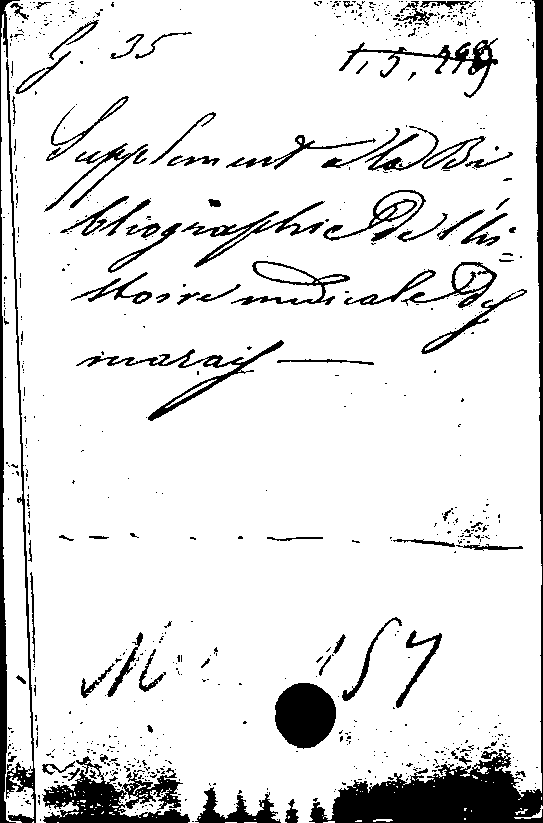 G. 35
1, 5, 298
Supplement a la Bi-
bliographie de l'hi-
stoire medicale des
marais —
157